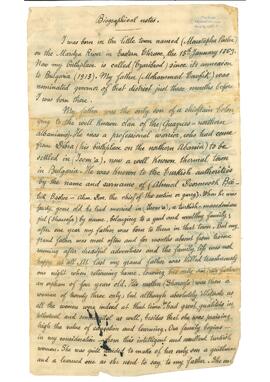 Biographical notes.
I was born in the little town named (Moustapha Pacha)
on the Maritza River in Eastern Thrace, the 18th January 1869.
Now my birthplace is called (Svailind) since its annexation
to Bulgaria (1913). My father (Mohammad Tewfik) was
nominated governor of that district just three months before
I was born there.
My father was the only son of a chieftain belon-
ging to the well known clan of the Guegues = northern
albanians. He was a professional warrior, who had come
from (his birthplace on the northern Albania) to be
settled in now a well known thermal town
in Bulgaria. He was known to the Turkish authorities
by the name and surname of (Ahmed
the chief of the section or gang). When he was
forty years old he had married in a turkish
girl by name, belonging to a good and wealthy family;
after one year my father was born to them in that town. But my
grand father was most often and for months absent from home,
running after dreadful adventures and the family life was not
happy at all. At last my grand father was killed treacherously
one night when returning home, leaving his only son, my father
an orphan of few years old. His mother was then a
woman of twenty five only, but although absolutely illiterate as
all the women were indeed at that time, had great qualities in
intellect and as well, besides that she was praising
high the value of education and learning. Our family begins
in my consideration from this intelligent and turkish
woman. She was quite to make of her only son a gentleman
and a learned one as she used to say to my father. She